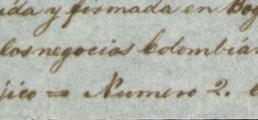 ida y firmada en Bog
los negocios Colombian
ico = Numero 2.